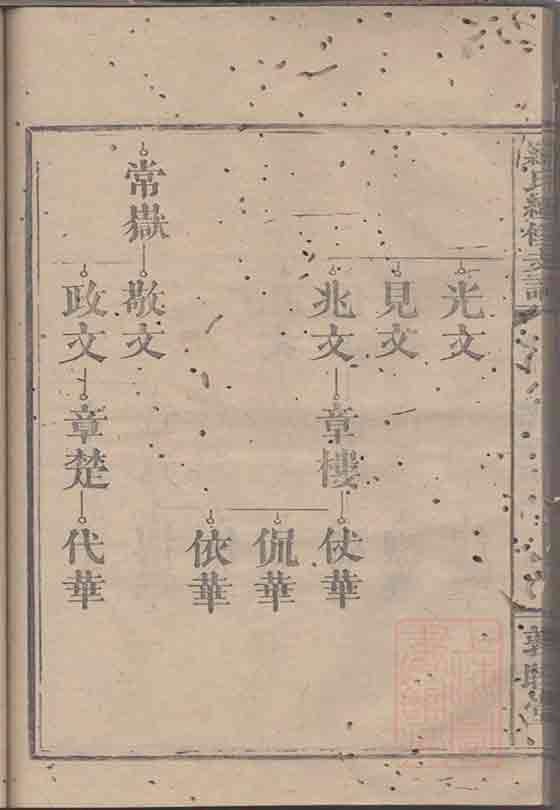 光文
見文
兆文
章樓
仗華
侃華
依華
常嶽
敬文
政文
章楚
代華